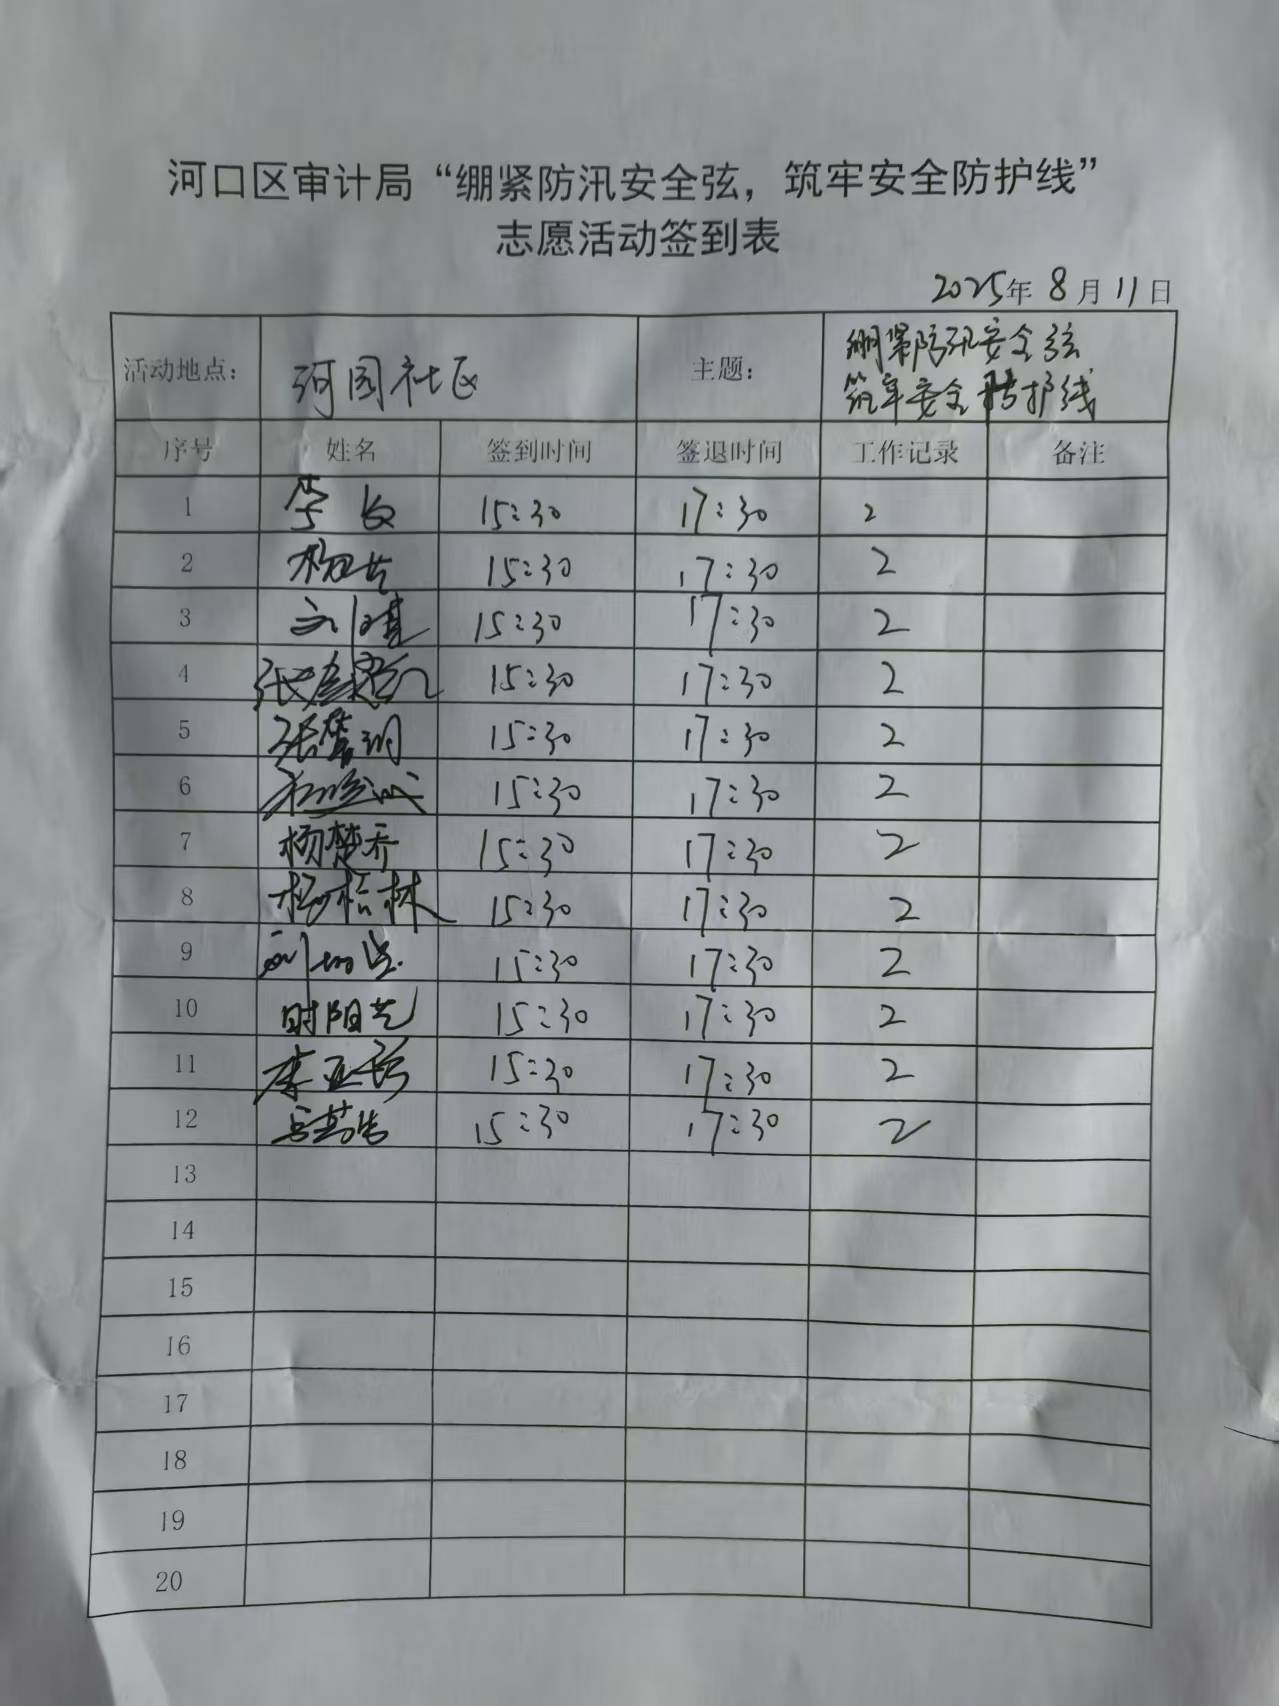 河口区审计局“绷紧防汛安全弦，筑牢安全防护线”
志愿活动签到表
2025年 8 月 11 日
活动地点： 河园社区 主题： 绷紧防汛安全弦
筑牢安全防护线
序号 姓名 签到时间 签退时间 工作记录 备注
1 李 15:30 17:30 2
2 杨 15:30 17:30 2
3 刘 15:30 17:30 2
4 张 15:30 17:30 2
5 张 15:30 17:30 2
6 15:30 17:30 2
7 杨楚乔 15:30 17:30 2
8 杨 林 15:30 17:30 2
9 刘 15:30 17:30 2
10 时阳艺 15:30 17:30 2
11 李亚 15:30 17:30 2
12 15:30 17:30 2
13
14
15
16
17
18
19
20